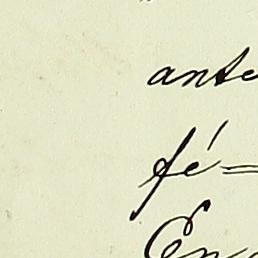 ante
fé=
En